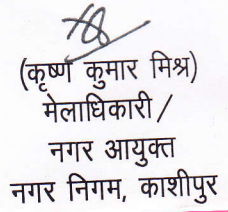 (कृष्ण कुमार मिश्र)
मेलाधिकारी /
नगर आयुक्त
नगर निगम, काशीपुर